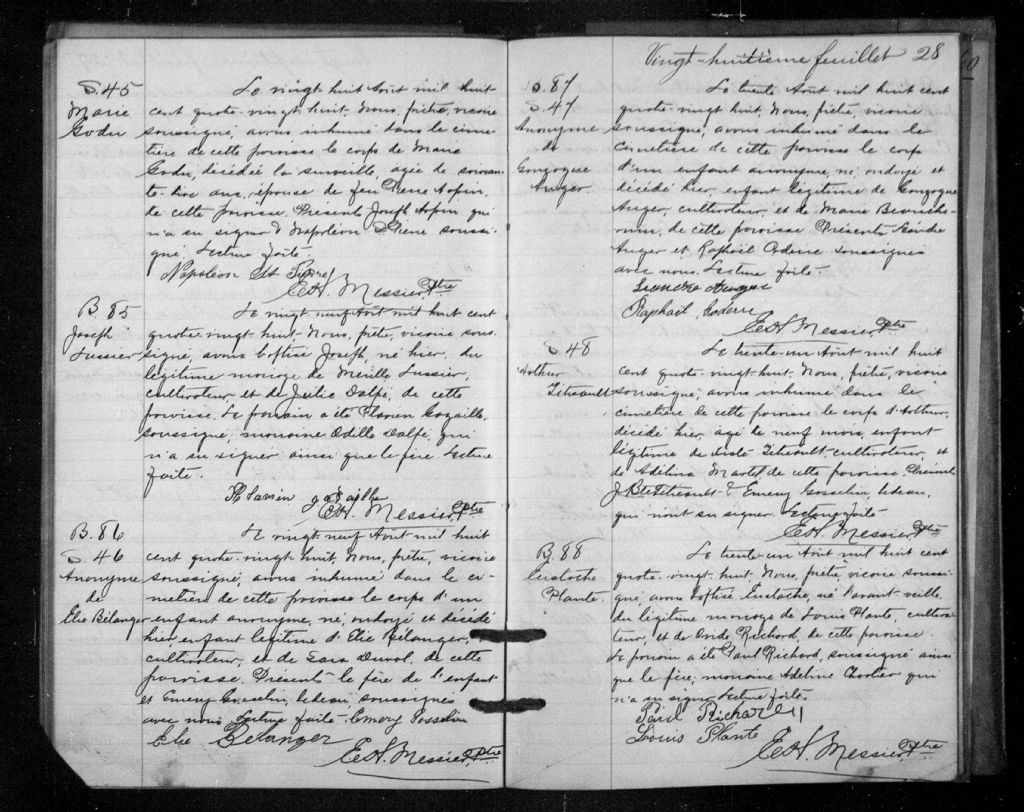 S. 45
Marie
Godu
Le vingt huit Août mil huit
cent quatre-vingt-huit, Nous, prêtre, vicaire
soussigné, avons inhumé dans le cime-
tière de cette paroisse le corps de Marie
Godu, décédée la surveille, agée de soixan-
te- ans, épouse de feu Pierre Arpin,
de cette paroisse. Présents Joseph Arpin qui
n'a su signer & Napoléon St Pierre soussi-
gné. Lecture faite.
Napoleon St Pierre
E.H. Messier, Ptre
B. 85
Joseph
Lussier
Le vingt-neuf Août mil huit cent
quatre-vingt-huit, Nous, prêtre, vicaire sous-
signé, avons baptisé Joseph, né hier, du
légitime mariage de Lussier,
cultivateur, et de Julie Dalpé, de cette
paroisse. Le parrain a été Flavien Gazaille,
soussigné; marraine Odille Dalpé, qui
n'a su signer ainsi que le père. Lecture
faite.
Flavien gazaille
E.H. Messier, Ptre
B. 86
S. 46
Anonyme
de
Elie Bélanger
Le vingt-neuf Août mil huit
cent quatre-vingt-huit, Nous, prêtre, vicaire
soussigné, avons inhumé dans le ci-
metière de cette paroisse le corps d'un
enfant anonyme, né, ondoyé et décédé
hier, enfant légitime d'Elie Bélanger,
cultivateur, et de Duval, de cette
paroisse. Présents le père de l'enfant
et Emery Gosselin, bedeau, soussignés
avec nous. Lecture faite. Emery Gosselin
Elie Bélanger
E.H. Messier, Ptre
Vingt-huitième feuillet 28
B. 87
S. 47
Anonyme
de
Gonzague
Auger
Le trente Août mil huit cent
quatre-vingt-huit, Nous, prêtre, vicaire
soussigné, avons inhumé dans le
cimetière de cette paroisse le corps
d'un enfant anonyme, né, ondoyé et
décédé hier, enfant légitime de Gonzague
Auger, cultivateur, et de Marie Beauche-
min, de cette paroisse. Présents Léandre
Auger et Raphaël Coderre soussignés
avec nous. Lecture faite.
Leandre Auger
Raphaël Coderre
E.H. Messier, Ptre
S. 48
Arthur
Tétreault
Le trente-un Août mil huit
cent quatre-vingt-huit, Nous, prêtre, vicaire
soussigné, avons inhumé dans le
cimetière de cette paroisse le corps d'Arthur,
décédé hier, agé de neuf mois, enfant
légitime de Tétreault, cultivateur, et
de Adélina Martel de cette paroisse. Présents
J. Bte Tétreault & Emery Gosselin, bedeau,
qui n'ont su signer. Lecture faite.
E.H. Messier, Ptre
B. 88
Eustache
Plante
Le trente-un Août mil huit cent
quatre-vingt-huit, Nous, prêtre, vicaire soussi-
gné, avons baptisé Eustache, né l'avant-veille
du légitime mariage de Louis Plante, cultiva-
teur, et de Richard, de cette paroisse.
Le parrain a été Paul Richard, soussigné ainsi
que le père; marraine Adeline qui
n'a su signer. Lecture faite.
Paul Richard
Louis Plante
E.H. Messier, Ptre